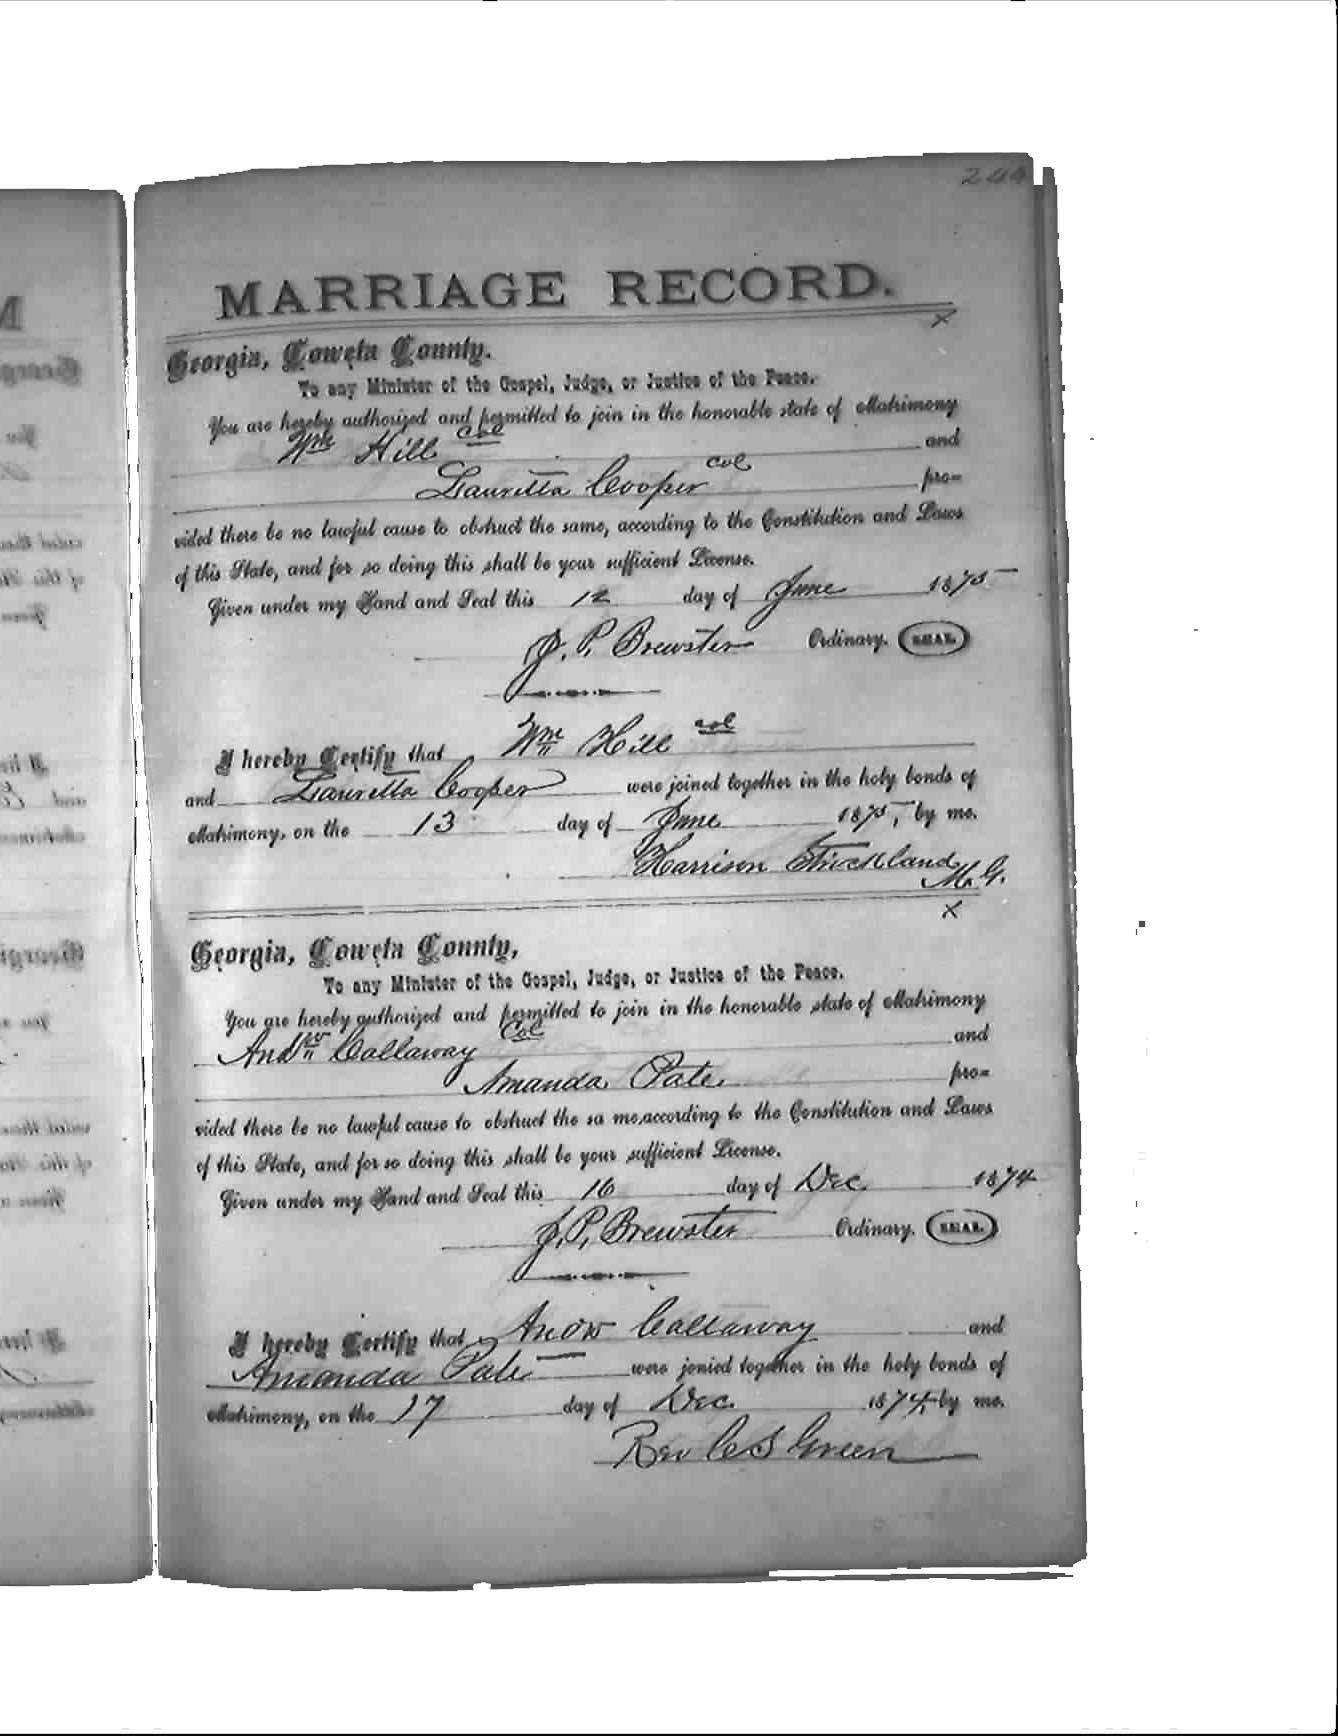 MARRIAGE RECORD.
x
Georgia, Coweta County.
To any Minister of the Gospel, Judge, or Justice of the Peace.
You are hereby authorized and permitted to join in the honorable state of Matrimony
Wm Hill col and
Lauretta Cooper col pro-
vided there be no lawful cause to obstruct the same, according to the Constitution and Laws
of this State, and for so doing this shall be your sufficient License.
Given under my Hand and Seal this 12 day of June 1875
J. P. Brewster Ordinary. SEAL
I hereby Certify that Wm Hill col
and Lauretta Cooper were joined together in the holy bonds of
Matrimony, on the 13 day of June 1875, by me.
Harrison Strickland
M. G.
x
Georgia, Coweta County,
To any Minister of the Gospel, Judge, or Justice of the Peace.
You are hereby authorized and permitted to join in the honorable state of Matrimony
Andw Callaway Col and
Amanda Pate pro-
vided there be no lawful cause to obstruct the sa me,according to the Constitution and Laws
of this State, and for so doing this shall be your sufficient License.
Given under my Hand and Seal this 16 day of Dec. 1874
J. P. Brewster Ordinary. SEAL
I hereby Certify that Andw Callaway and
Amanda Pate were jonied together in the holy bonds of
Matrimony, on the 17 day of Dec. 1874, by me.
Rev C S Green